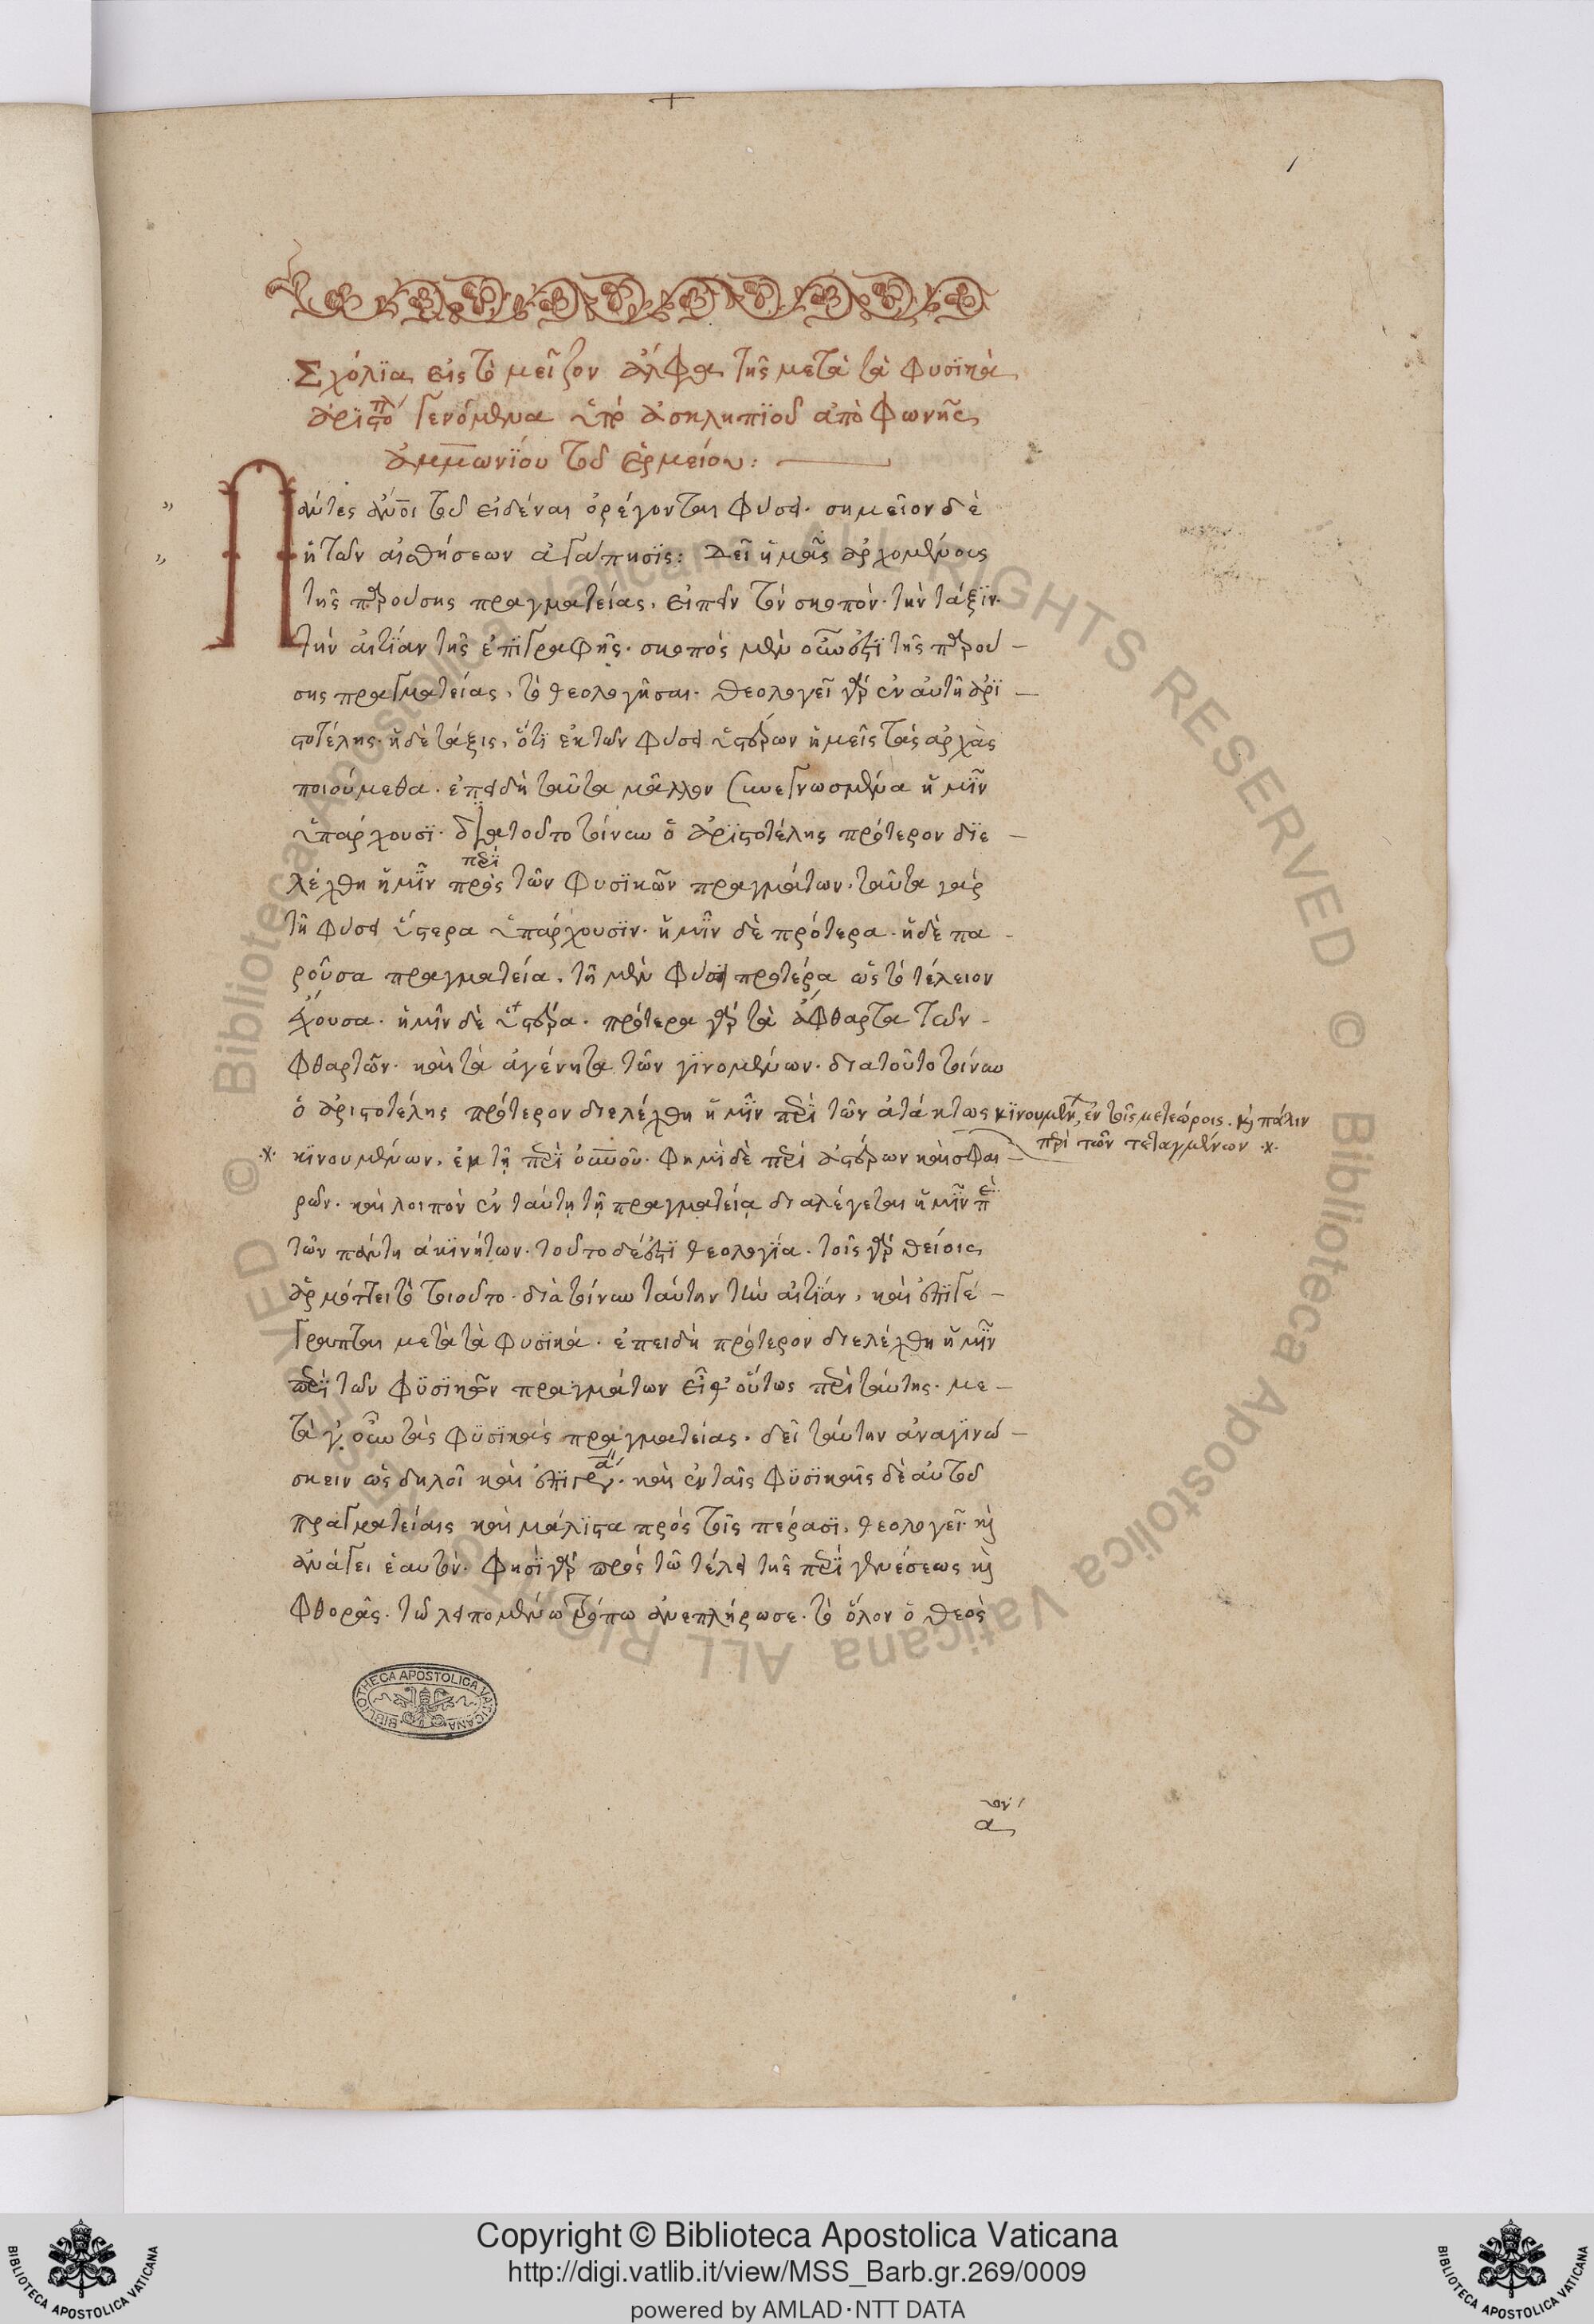 Σχόλϊα εἰς τὸ μεῖζον ἄλφα τῆς μετὰ τὰ φυσϊκὰ
ἀρϊστο γενόμενα ὑπὸ ἀσκληπϊοῦ ἀπὸ φωνῆς
ἀμμωνϊου τοῦ ἑρμείου:
Πάντες ἄνοι τοῦ εἰδέναι ὀρέγονται φύσει. σημεῖον δὲ
ἡ τῶν αἰσθήσεων ἀγάπησϊς: Δεῖ ἡμᾶς ἀρχομένους
τῆς παρούσης πραγματείας, εἰπεῖν τὸν σκοπὸν. τὴν τάξϊν.
τὴν αἰτϊαν τῆς ἐπϊγραφῆς. σκοπὸς μὲν οὖν ἐστϊ τῆς παρού-
σης πραγματείας, τὸ θεολογῆσαι. θεολογεῖ γὰρ ἐν αὐτῆ ἀρϊ-
στοτέλης. ἡ δὲ τάξις, ὅτϊ ἐκ τῶν φύσει ὑστέρων ἡμεῖς τὰς ἀρχὰς
ποιούμεθα. ἐπειδὴ ταῦτα μᾶλλον συνεγνωσμένα ἡμῖν
ὑπάρχουσϊ. διατοῦτο τοίνυν ὁ ἀρϊστοτέλης πρότερον δϊε-
περὶ
λέχθη ἡμῖν πρὸς τῶν φυσϊκῶν πραγμάτων. ταῦτα γὰρ
τῆ φύσει ὕστερα ὑπάρχουσϊν. ἡμῖν δὲ πρότερα. ἡ δὲ πα-
ροῦσα πραγματεία, τῆ μὲν φύσει προτέρα ὡς τὸ τέλειον
ἔχουσα. ἡμῖν δὲ ὑστέρα. πρότερα γὰρ τὰ ἄφθαρτα τῶν-
φθαρτῶν. καὶ τὰ ἀγένητα τῶν γϊνομένων. διατοῦτο τοίνυν
ὁ ἀριστοτέλης πρότερον διελέχθη ἡμῖν περὶ τῶν ἀτάκτως κϊνουμένων, ἐν τοῖς μετεώροις. καὶ πάλιν
περὶ τῶν τεταγμένων
κϊνουμένων, ἐν τῆ περὶ οὐνοῦ. φημϊ δὲ περὶ ἀστέρων καὶ σφαι-
ρῶν. καὶ λοιπὸν ἐν ταύτῃ τῇ πραγματείᾳ διαλέγεται ἡμῖν περὶ
τῶν πάντη ἀκϊνήτων. τοῦτο δέ ἐστϊ θεολογϊα. τοῖς γὰρ θείοις
ἁρμόττει τὸ τοιοῦτο. διὰ τοίνυν ταύτην τὴν αἰτϊαν, καὶ ἐπϊγέ-
γραπται μετὰ τὰ φυσϊκά. ἐπειδὴ πρότερον διελέχθη ἡμῖν
περὶ τῶν φϋσϊκῶν πραγμάτων εἶθ' οὕτως περὶ ταύτης. με-
τὰ γ οὖν τὰς φϋσϊκὰς πραγματείας. δεῖ ταύτην ἀναγϊνώ-
σκειν ὡς δηλοῖ καὶ ἡ ἐπιγρ. καὶ ἐν ταῖς φϋσϊκαῖς δὲ αὐτοῦ
πραγματείαις καὶ μάλϊστα πρὸς τοῖς πέρασϊ, θεολογεῖ. καὶ
ἀνάγει ἑαυτὸν. φησϊ γὰρ πρὸς τῶ τέλει τῆς περὶ γενέσεως καὶ
φθορᾶς. τῶ λειπομένω τρόπω ἀνεπλήρωσε. τὸ ὅλον ὁ θεὸς
BIBLIOTHECA APOSTOLICA VATICANA
Copyright © Biblioteca Apostolica Vaticana
http://digi.vatlib.it/view/MSS_Barb.gr.269/0009
powered by AMLAD·NTT DATA